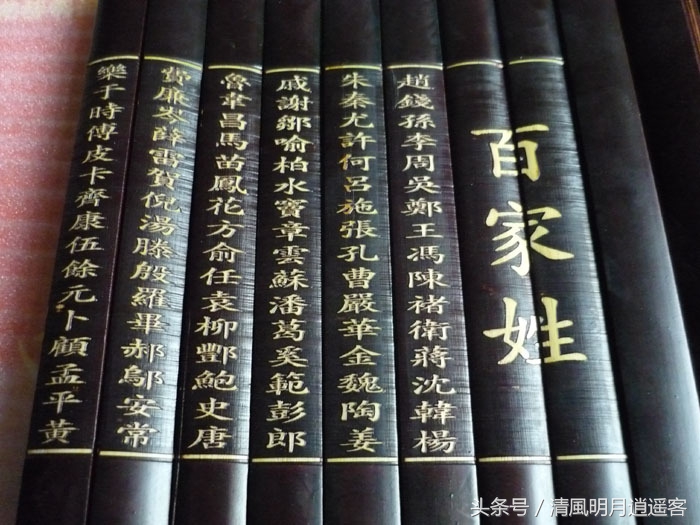 百家姓
趙錢孫李周吳鄭王馮陳褚衛蔣沈韓楊
朱秦尤許何呂施張孔曹嚴華金魏陶姜
戚謝鄒喻柏水竇章雲蘇潘葛奚範彭郎
魯韋昌馬苗鳳花方俞任袁柳酆鮑史唐
費廉岑薛雷賀倪湯滕殷羅畢郝鄔安常
樂于時傅皮卡齊康伍餘元卜顧孟平黃
头条号 / 清風明月逍遥客